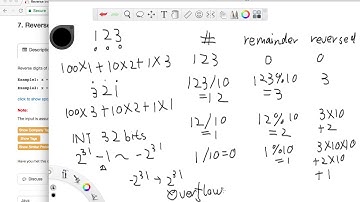 7. Reverse
Descript
Reverse digits of
Example1: x =
Example2: x =
click to show spoi
Note:
The input is assu
Show Company Tags
Show Tags
Show Similar Problems
Have you met this
1 2 3
100X1 + 10X2 + 1X3
3 2 1
100X3 + 10X2 + 1X1
INT 32 bits
2^31 - 1 ~ -2^31
-2^31 → 2^31
Overflow
# remainder reversed
123 0 0
123/10 = 12 123%10 = 3 3
12/10 = 1 12%10 = 2 3X10 + 2
1/10=0 1%10 = 1 3X10X10 + 2X10 + 1